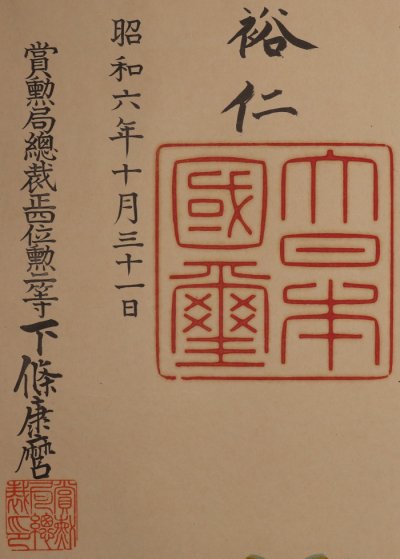 裕仁
大日本
國璽
昭和六年十月三十一日
賞勲局總裁正四位勲二等下條康麿
賞勲
局總
裁印